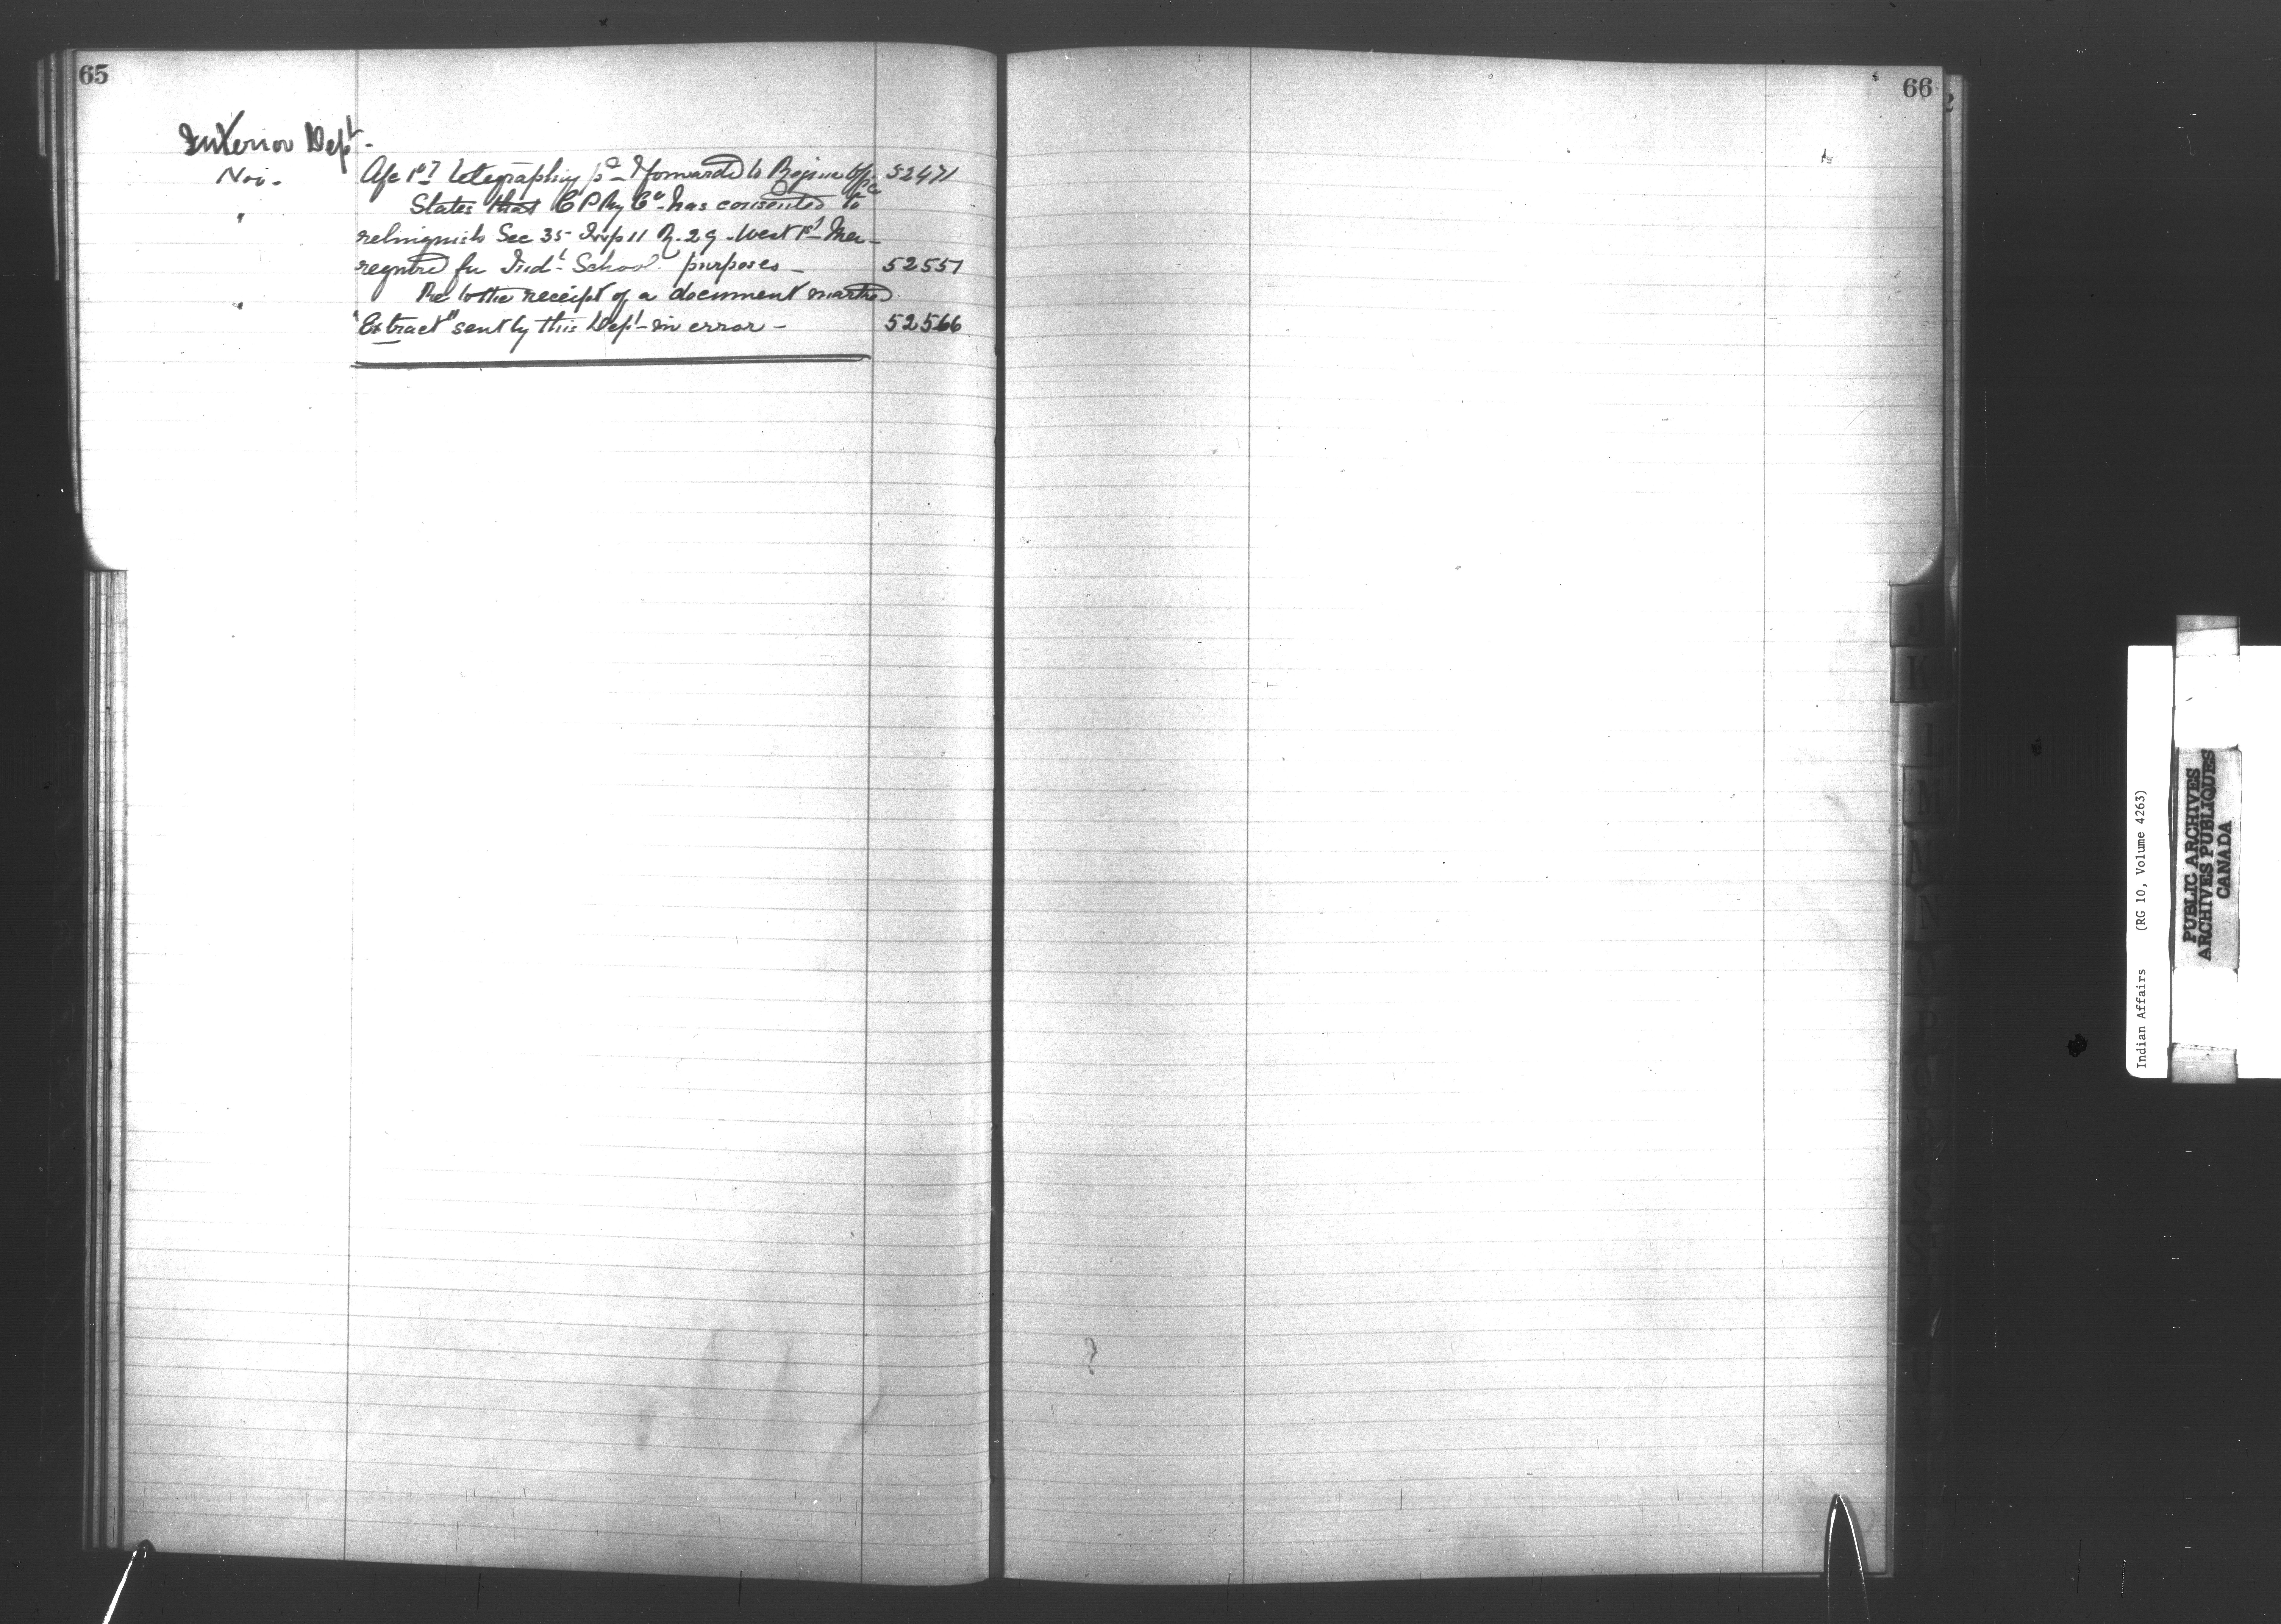 65
Interior Dept.
Nov. telegraphing forwarded to Regina Offce 52471
" States that C P Ry Co. has consented to
relinquish Sec 35 Twp 11 R. 29 West 1st Mer
required for Indl School purposes 52551
" Rel to the receipt of a document marked
"Extract" sent by this Dept in error 52566
66
J
K
L
M
Indian Affairs (RG 10, Volume 4263)
PUBLIC ARCHIVES
ARCHIVES PUBLIQUES
CANADA